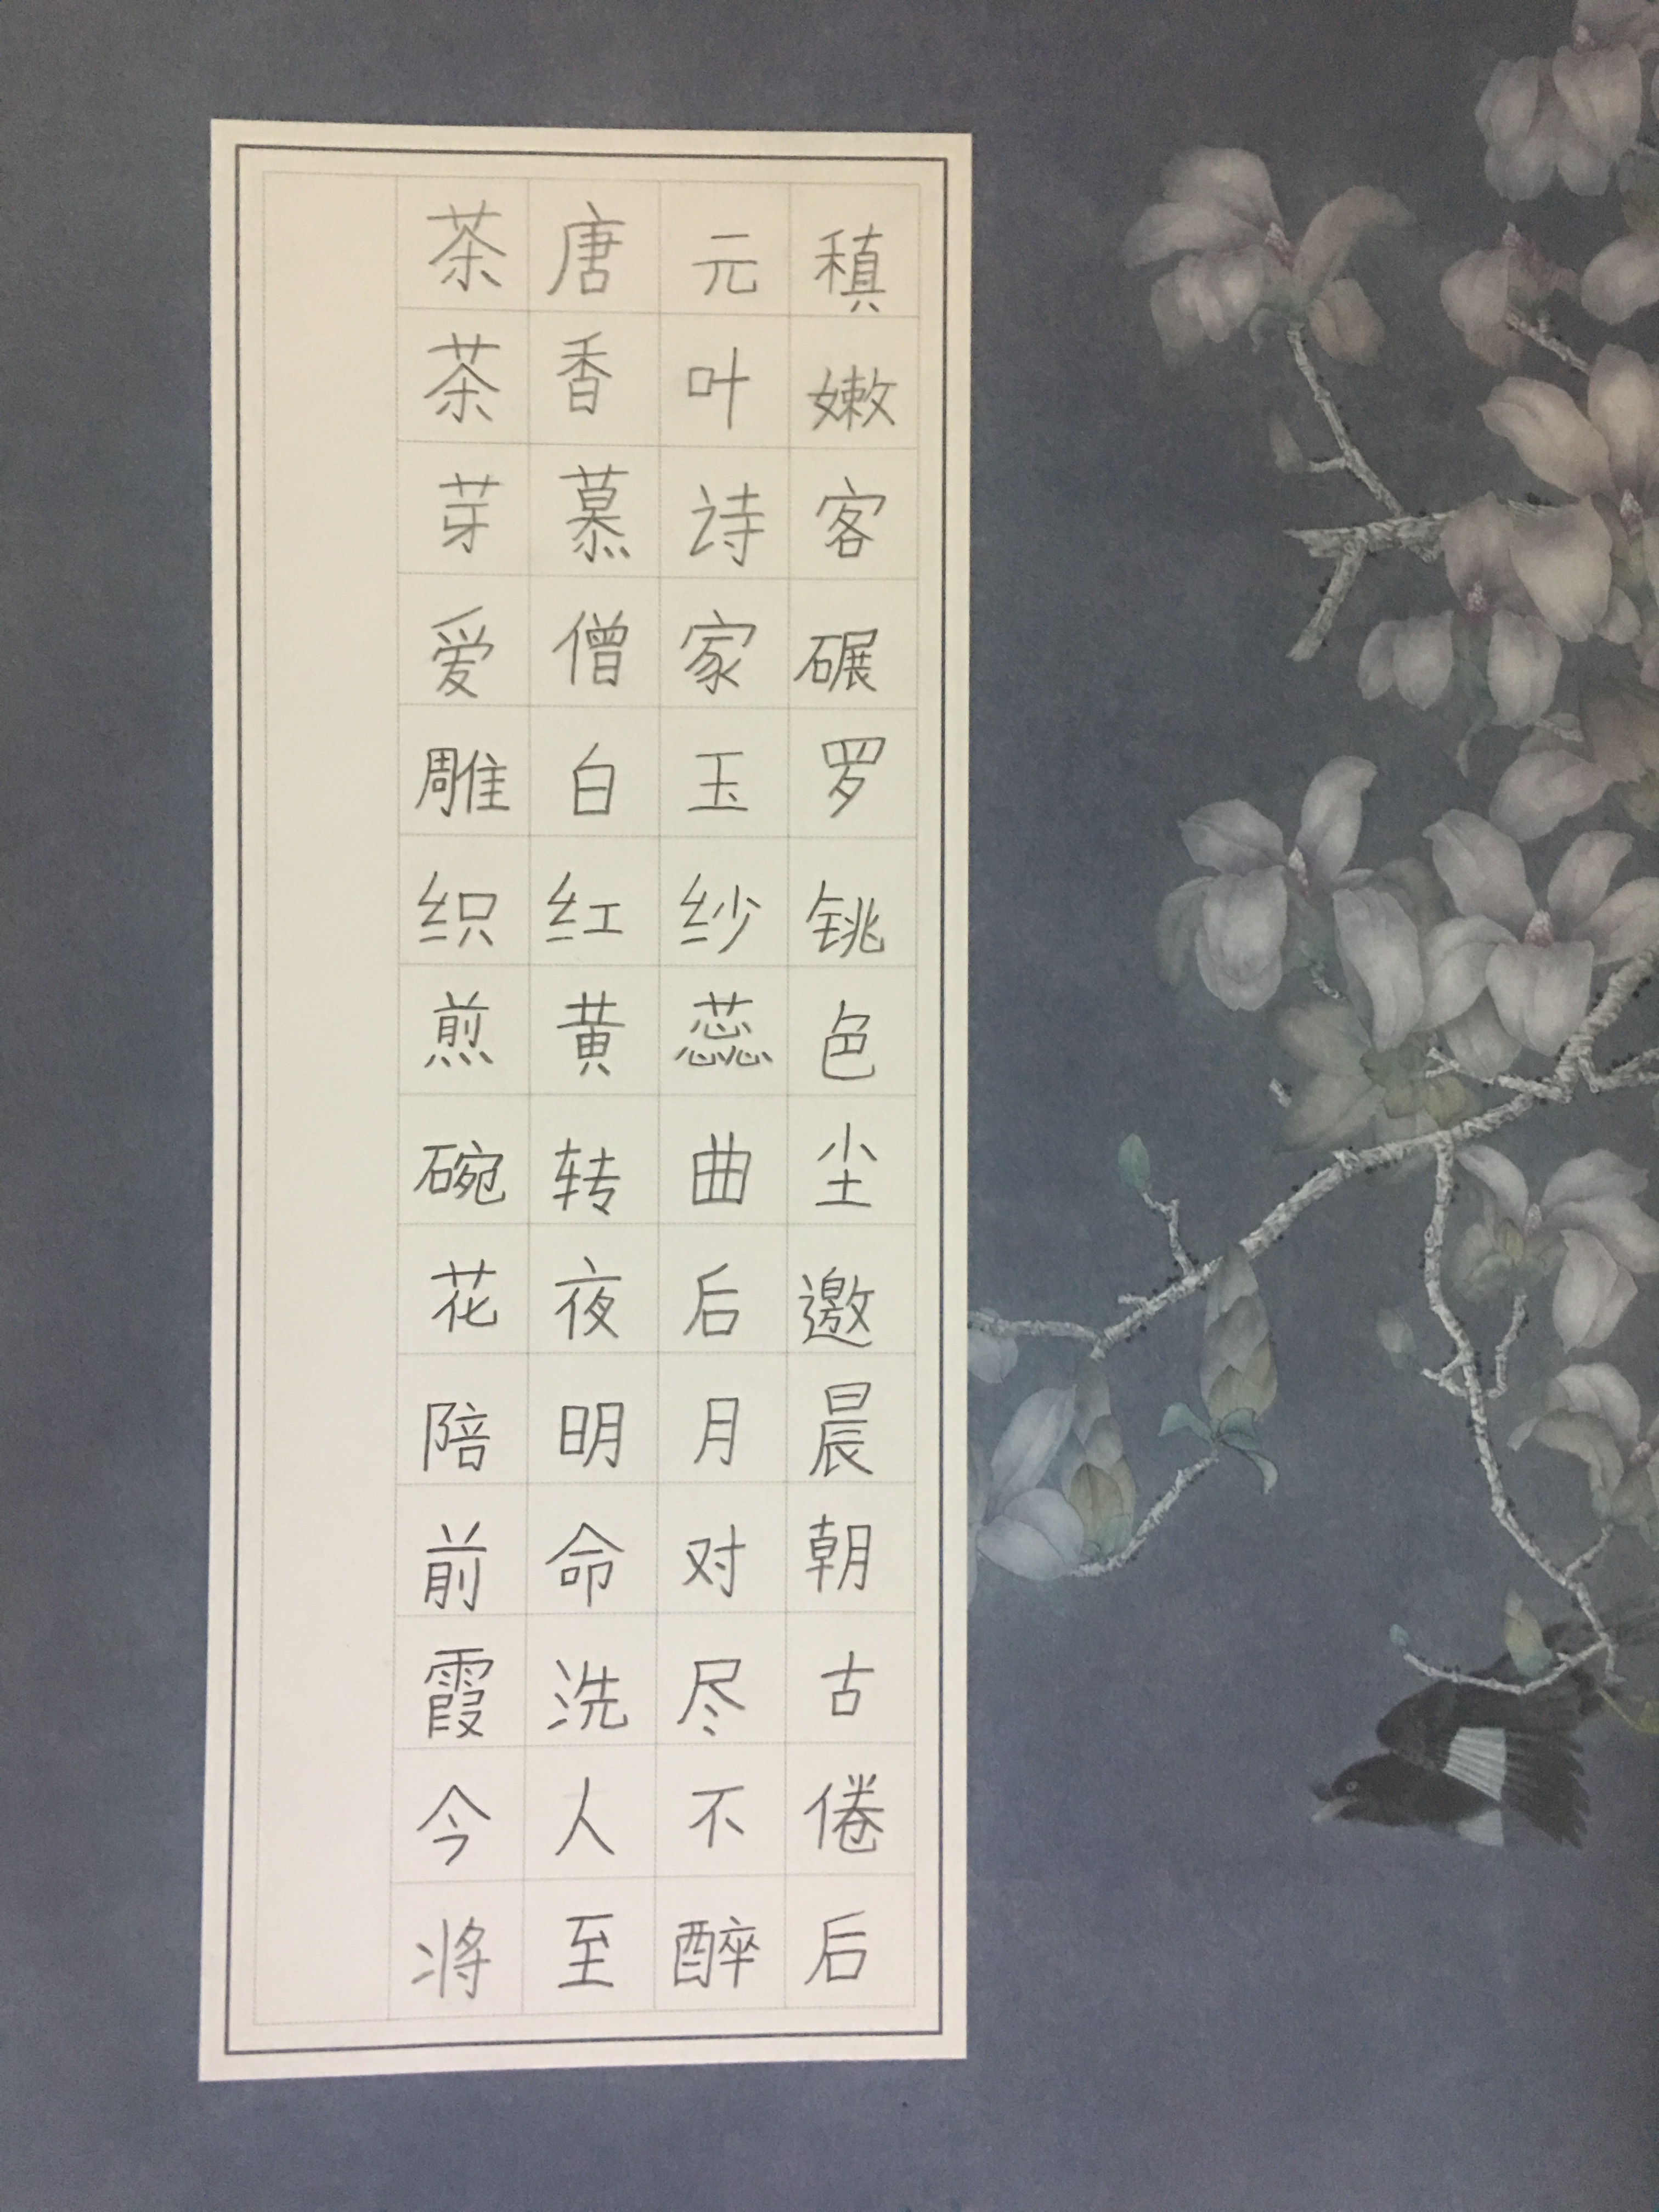 茶唐元稹
茶香叶嫩
芽慕诗客
爱僧家碾
雕白玉罗
织红纱铫
煎黄蕊色
碗转曲尘
花夜后邀
陪明月晨
前命对朝
霞洗尽古
今人不倦
将至醉后